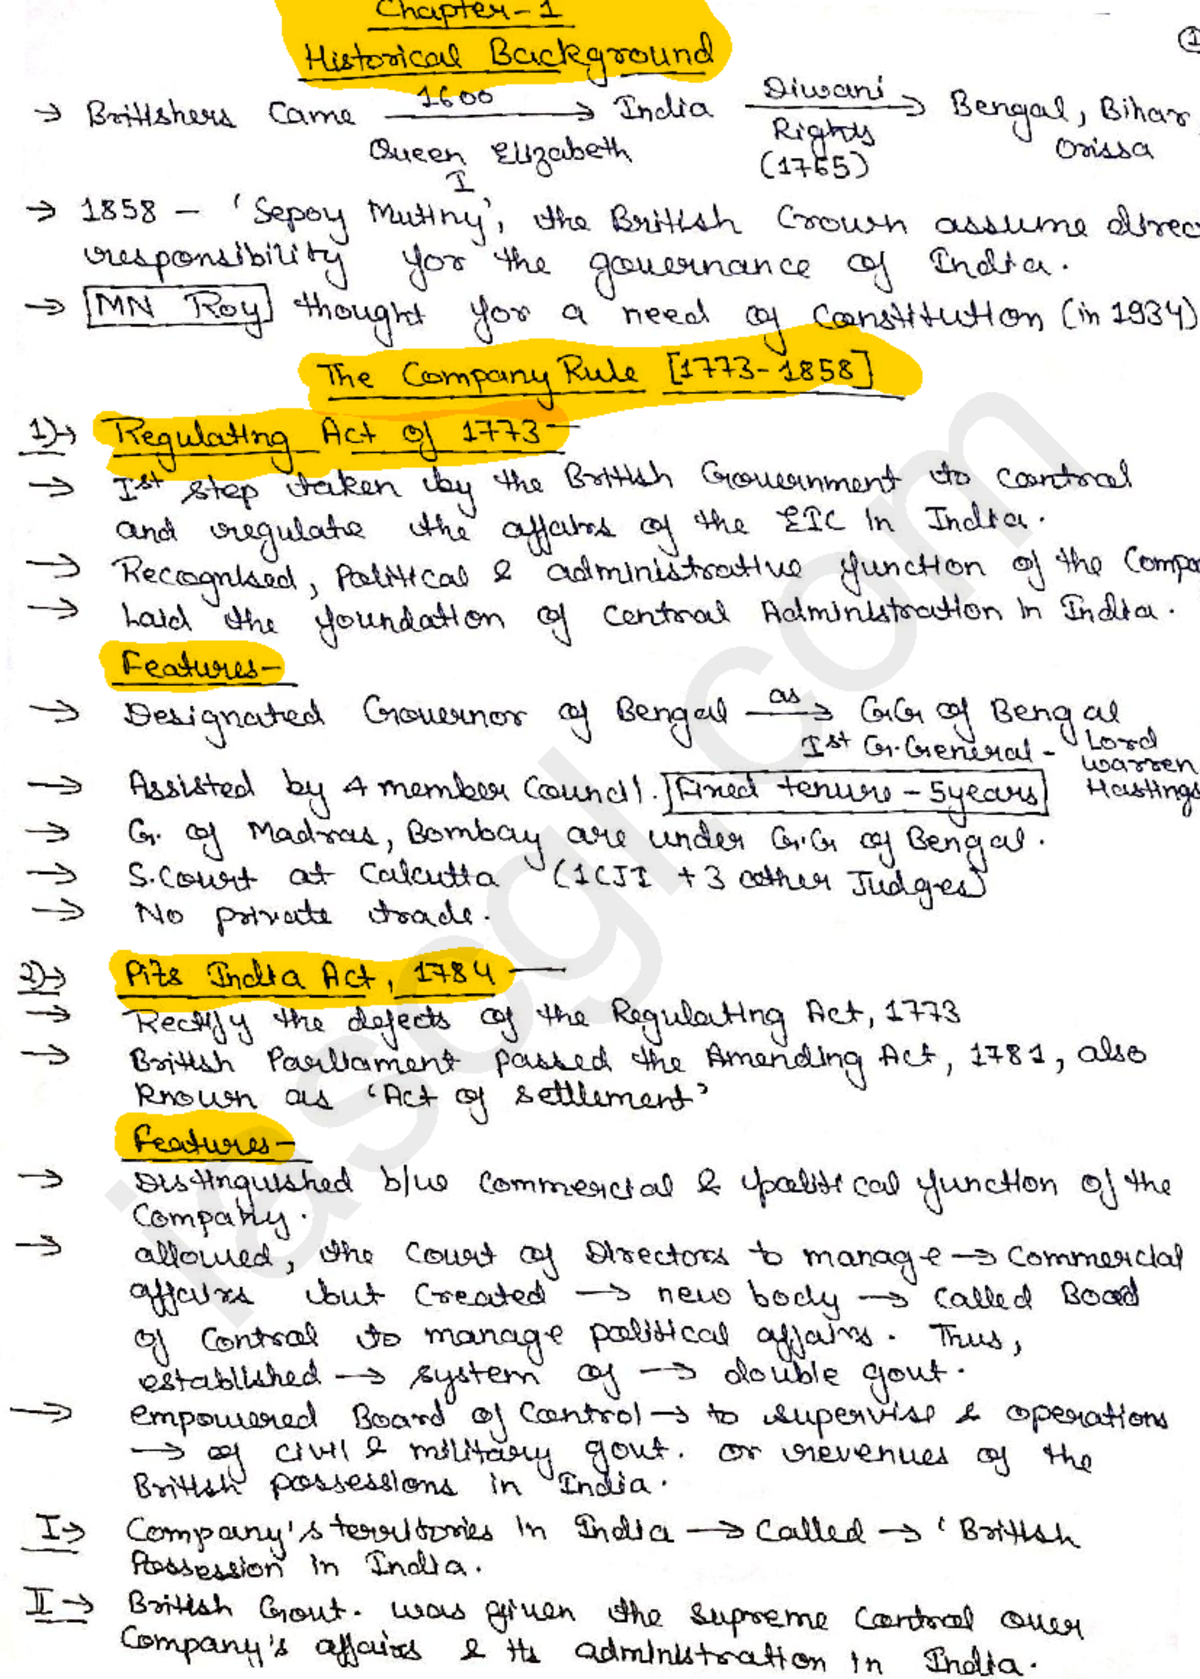 Chapter-1
①
Historical Background
→ Britishers Came 1600 → India Diwani → Bengal, Bihar,
Queen Elizabeth Rights Orissa
I (1765)
→ 1858 - 'Sepoy Mutiny', the British Crown assume direc
responsibility for the governance of India.
→ MN Roy thought for a need of Constitution (in 1934)
The Company Rule [1773-1858]
1)→ Regulating Act of 1773-
→ Ist step taken by the British Government to control
and regulate the affairs of the EIC in India.
→ Recognised, Political & administrative function of the Compa
→ Laid the foundation of central Administration in India.
Features-
→ Designated Governor of Bengal as → G.G. of Bengal
Ist G.General - Lord
Warren
→ Assisted by 4 member Council. Fixed tenure - 5years Hastings
→ G. of Madras, Bombay are under G.G of Bengal.
→ S.Court at Calcutta (1CJI + 3 other Judges)
→ No private trade.
2)→ Pits India Act, 1784 -
→ Rectify the defects of the Regulating Act, 1773
→ British Parliament passed the Amending Act, 1781, also
known as 'Act of settlement'
Features-
→ Distinguished b/w commercial & political function of the
Company.
→ allowed, the Court of Directors to manage → Commercial
affairs but Created → new body → called Board
of Control to manage political affairs. Thus,
established → system of → double govt.
→ empowered Board of Control → to supervise & operations
→ of civil & military govt. or revenues of the
British possessions in India.
I→ Company's territories in India → Called → 'British
Possession in India.
II→ British Govt. was given the supreme control over
Company's affairs & its administration in India.
iasgl.com